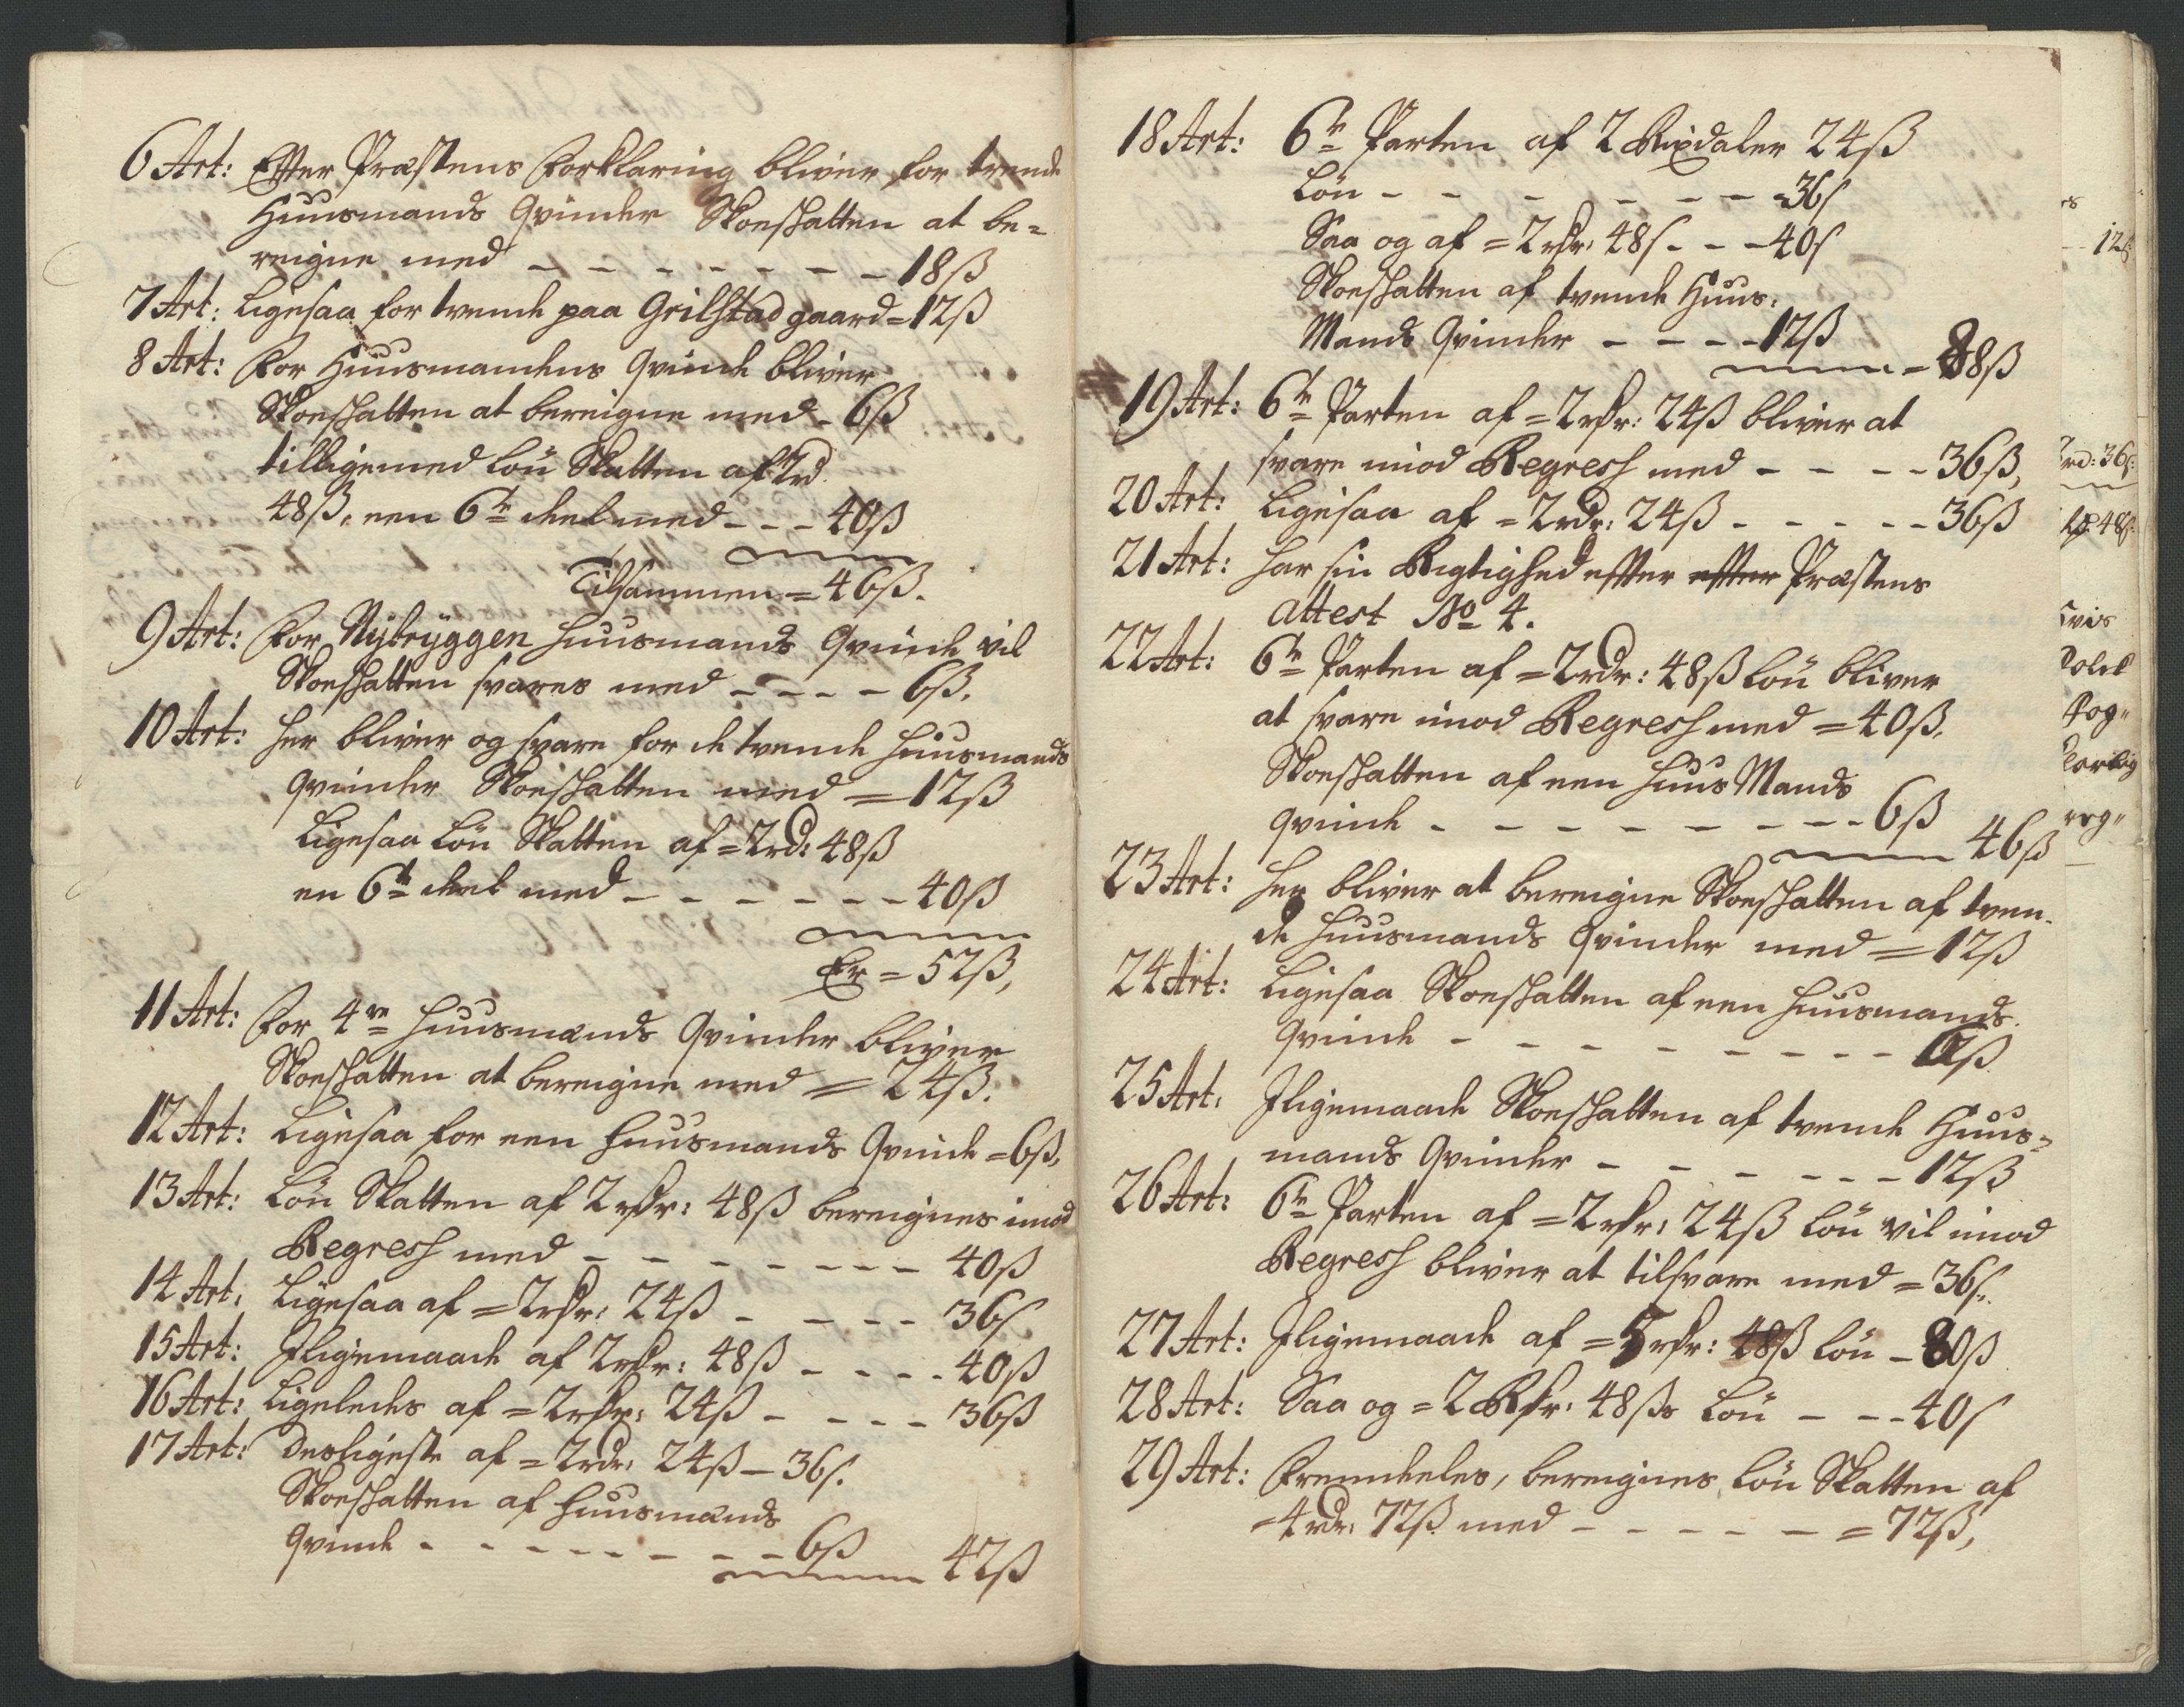 6 Art: Efter Præstens Forklaring bliver for trende
Huusmands Qvinder Skoeskatten at be=
reigne med - - - - - - - 18ß
7 Art: Ligesaa for tvende paa Grilstad gaard = 12ß
8 Art: For Huusmandens Qvinde bliver
Skoeskatten at bereigne med - 6ß
tilligemed Løn Skatten af 2rd
48ß, een 6te deel med - - - 40ß
Tilsammen = 46ß.
9 Art: For Nybryggen Huusmands Qvinde vil
Skoeskatten svares med - - - - 6ß.
10 Art: Her bliver og svare for de tvende Huusmands
Qvinder Skoeskatten med = 12ß
Ligesaa Løn Skatten af = 2rd: 48ß
en 6te deel med - - - - - - 40ß
Er = 52ß,
11 Art: For 4re Huusmands Qvinder bliver
Skoeskatten at bereigne med = 24ß.
12 Art: Ligesaa for een Huusmands Qvinde = 6ß,
13 Art: Løn Skatten af 2 rdr: 48ß bereignes imod
Regress med - - - - - - - 40ß
14 Art: Ligesaa af = 2rdr: 24ß - - - - 36s
15 Art: Iligemaade af 2rdr: 48ß - - - - 40ß
16 Art: Ligeledes af = 2rdr: 24ß - - - - 36ß
17 Art: Desligeste af = 2rdr: 24ß - 36s.
Skoeskatten af Huusmands
Qvinde - - - - - - - - 6ß
42ß
18 Art: 6te Parten af 2 Rixdaler 24ß
Løn - - - - - - - 36s
Saa og af = 2rdr: 48s - - - 40s
Skoeskatten af tvende Huus:
Mands Qvinder - - - - 12ß
= 88ß
19 Art: 6te Parten af = 2rdr: 24ß bliver at
svare imod Regress med - - - - 36ß,
20 Art: Ligesaa af = 2rdr: 24ß - - - - - 36ß
21 Art: Har sin Rigtighed efter efter Præstens
Attest No 4.
22 Art: 6te Parten af = 2rdr: 48ß Løn bliver
at svare imod Regress med = 40ß.
Skoeskatten af een Huus Mands
Qvinde - - - - - - - - - 6ß
46ß
23 Art: Her bliver at bereigne Skoeskatten af tven-
de Huusmands Qvinder med = 12ß
24 Art: Ligesaa Skoeskatten af een Huusmands
Qvinde - - - - - - - - - 6ß
25 Art: Iligemaade Skoeskatten af tvende Huus=
mands Qvinder - - - - - - - 12ß
26 Art: 6te Parten af = 2rdr: 24ß Løn vil imod
Regress bliver at tilsvare med = 36s.
27 Art: Iligemaade af = 5rdr: 48ß Løn - 80ß
28 Art: Saa og = 2 Rdr: 48ß Løn - - - 40s
29 Art: Fremdeeles, bereignes Løn Skatten af
= 4rdr: 72ß med - - - - - = 72ß,
12s
rd: 36s
48s